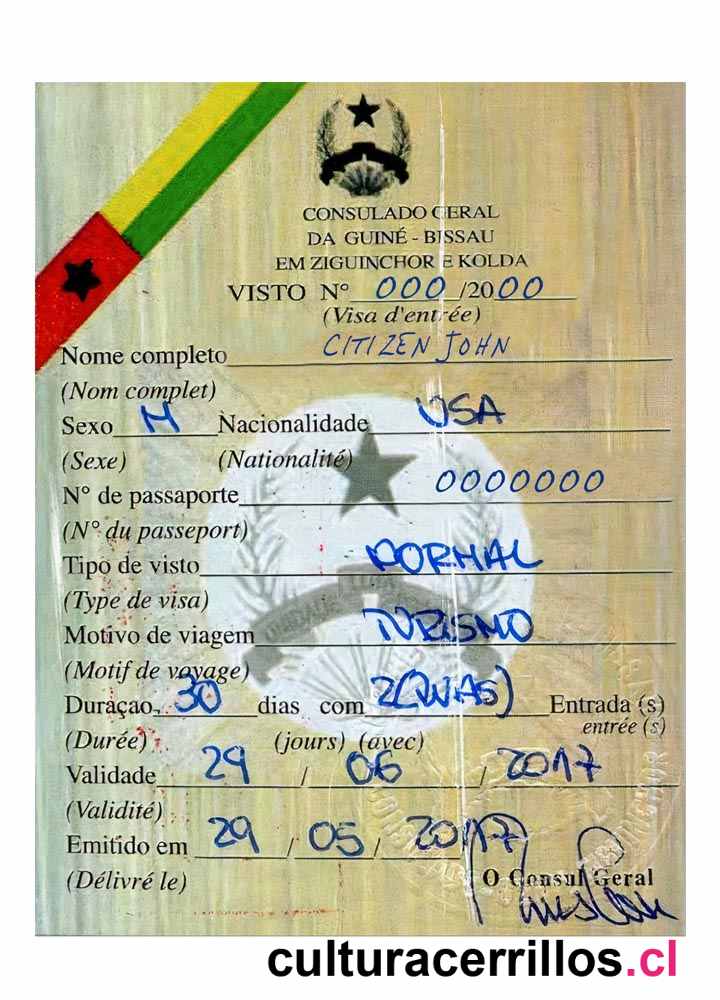 CONSULADO GERAL
DA GUINÉ - BISSAU
EM ZIGUINCHOR E KOLDA
VISTO Nº 000 /2000
(Visa d'entrée)
Nome completo CITIZEN JOHN
(Nom complet)
Sexo M Nacionalidade USA
(Sexe) (Nationalité)
Nº de passaporte 0000000
(Nº du passeport)
Tipo de visto NORMAL
(Type de visa)
Motivo de viagem TURISMO
(Motif de voyage)
Duraçao 30 dias com 2(DUAS) Entrada (s)
(Durée) (jours) (avec) entrée (s)
Validade 29 / 06 / 2017
(Validité)
Emitido em 29 / 05 / 2017
(Délivré le) O Consul Geral
culturacerrillos.cl